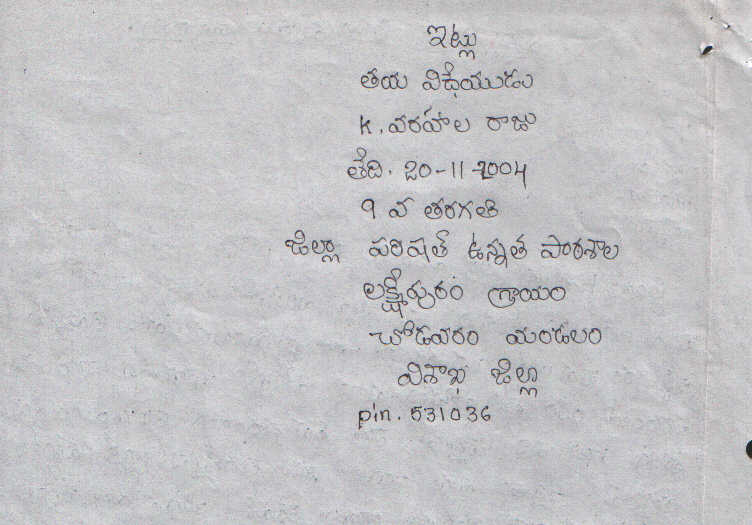 ఇట్లు
తయ విధేయుడు
K. వరహాల రాజు
తేది. 20-11-2004
9 వ తరగతి
జిల్లా పరిషత్ ఉన్నత పాఠశాల
లక్ష్మీపురం గ్రామం
చోడవరం మండలం
విశాఖ జిల్లా
pin. 531036